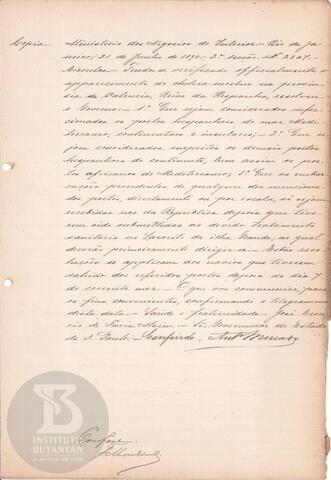 Copia Ministerio dos Negocios do Interior - Rio de Ja-
neiro, 21 de Junho de 1890 - 2ª Secção. Nº 2347.
Circular. Tendo-se verificado officialmente
apparecimento do cholera morbus na provin-
cia de Valencia, Reino da Hespanha, resolveu
o Governo: 1º Que sejam considerados infic-
cionados os portos hespanhoes do mar Medi-
terraneo, continentaes e insulares; 2º Que se-
jam considerados suspeitos os demais portos
hespanhoes do continente, bem assim os por-
tos africanos do Mediterraneo; 3º Que as embar-
cações procedentes de qualquer dos menciona-
dos portos, directamente ou por escala, só sejam
recebidas nos da Republica depois que tive-
rem sido submettidas ao devido tratamento
sanitario no Lazareto da Ilha Grande, ao qual
deverão primeiramente dirigir-se. Estas reso-
luções se applicam aos navios que tiverem
sahido dos referidos portos depois do dia 7
do corrente mez. O que vos communico, para
os fins convenientes, confirmando o telegramma
desta data - Saude e fraternidade - José Cesa-
rio de Faria Alvim - Sr. Governador do Estado
de S. Paulo. Conferido.
Conforme
INSTITUTO
BUTANTAN
A serviço da vida